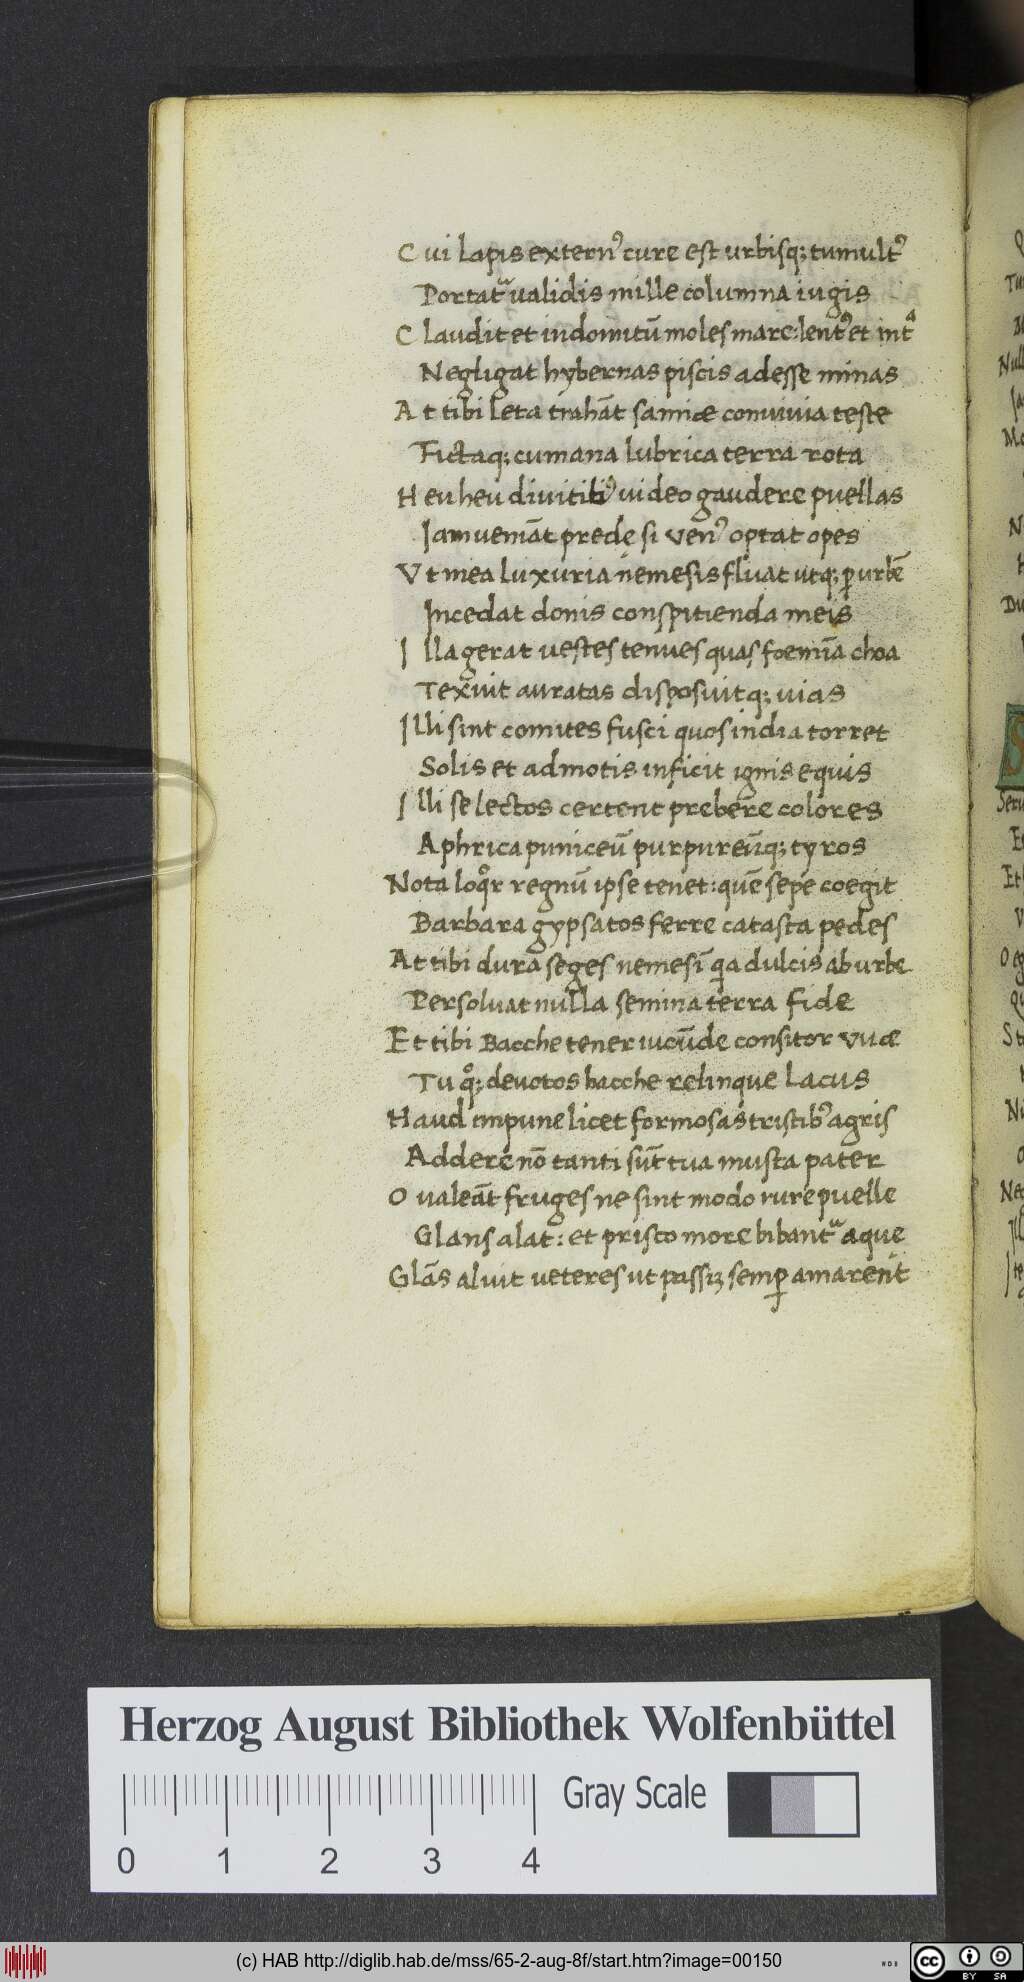 Cui lapis extern⁹ cure est urbisq; tumult⁹
Portat᷑ validis mille columna iugis
Claudit et indomitū moles mare: lent⁹ et int᷑
Negligat hybernas piscis adesse minas
At tibi leta trahāt samiæ convivia teste
Fictaq; cumana lubrica terra rota
Heu heu divitib⁹ video gaudere puellas
Jam veniāt predę si ven⁹ optat opes
Ut mea luxuria nemesis fluat utq; ꝑ urbē
Incedat donis conspitienda meis
Illa gerat vestes tenues quas foemīa choa
Texuit auratas disposuitq; vias
Illi sint comites fusci quos india torret
Solis et admotis inficit ignis equis
Illi selectos certent prebere colores
Aphrica puniceū purpureūq; tyros
Nota loqᷣr regnū ipse tenet: quē sepe coegit
Barbara gypsatos ferre catasta pedes
At tibi dura seges nemesī qia dulcis ab urbe
Persolvat nulla semina terra fide
Et tibi Bacche tener iucūde consitor vvæ
Tu qͦ; devotos bacche relinque lacus
Haud impune licet formosas tristib⁹ agris
Addere nō tanti sūt tua musta pater
O valeāt fruges ne sint modo rure puelle
Glans alat: et prisco more bibant᷑ aque
Glās aluit veteres ut passiȝ semꝑ amarent
Herzog August Bibliothek Wolfenbüttel
Gray Scale
0 1 2 3 4
(c) HAB http://diglib.hab.de/mss/65-2-aug-8f/start.htm?image=00150
cc BY SA